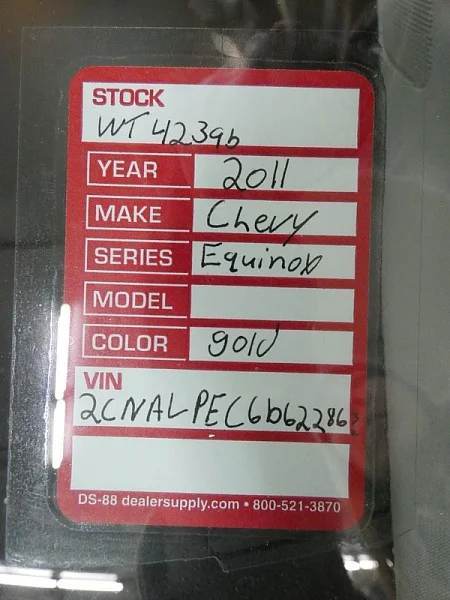 STOCK
WT4239b
YEAR 2011
MAKE Chevy
SERIES Equinox
MODEL
COLOR gold
VIN
2CNALPEC6b622863
DS-88 dealersupply.com • 800-521-3870